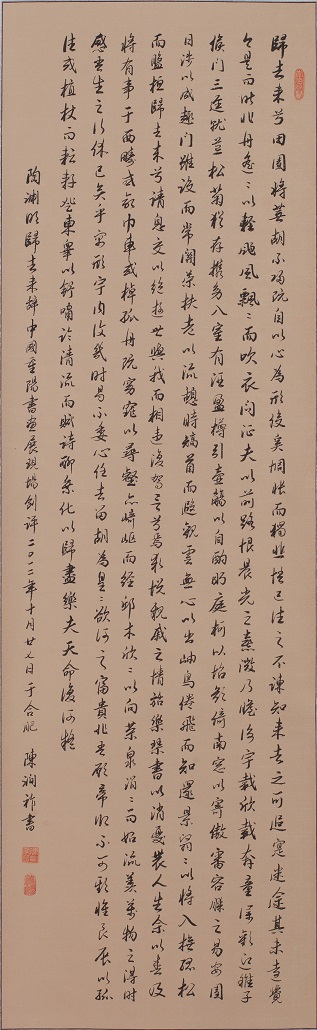 歸去来兮田園將蕪胡不歸既自以心為形役奚惆悵而獨悲悟已往之不諫知来者之可追寔迷途其未遠覺
今是而昨非舟遙〻以輕颺風飄〻而吹衣问征夫以前路恨晨光之熹微乃瞻衡宇載欣載奔童僕歡迎稚子
候门三逕就荒松菊猶存攜幼入室有酒盈樽引壺觴以自酌眄庭柯以怡顏倚南窓以寄傲審容膝之易安園
日涉以成趣门雖設而常關策扶老以流憩時矯首而遐觀雲無心以出岫鳥倦飛而知還景翳〻以將入撫孤松
而盤桓歸去来兮請息交以絕遊世與我而相違復駕言兮焉求悅親戚之情話樂琴書以消憂農人告余以春及
將有事于西疇或命巾車或棹孤舟既窈窕以尋壑亦崎嶇而經邱木欣〻以向榮泉涓〻而始流羨萬物之得時
感吾生之行休已矣乎寓形宇内復幾時曷不委心任去留胡為遑〻欲何之富貴非吾願帝鄉不可期懷良辰以孤
往或植杖而耘耔登東皋以舒嘯臨清流而賦詩聊乘化以歸盡樂夫天命復何疑
陶渊明歸去来辞中國重陽書画展現場创评二〇一二年十月廿七日于合肥 陳洞祚書